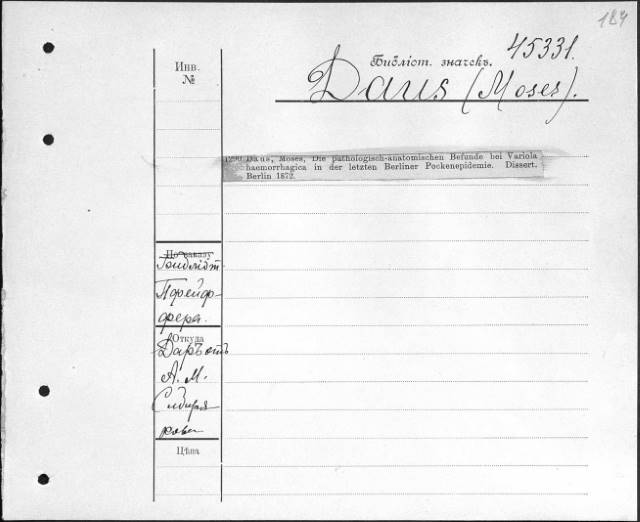 184
Библіот. значекъ.
45331.
Инв.
№
Daus (Moses).
1290 Daus, Moses, Die pathologisch-anatomischen Befunde bei Variola
haemorrhagica in der letzten Berliner Pockenepidemie. Dissert.
Berlin 1872.
По заказу
Библіот.
Пфейф-
фера.
Откуда
Даръ отъ
А. М.
Сибиря
кова
Цѣна